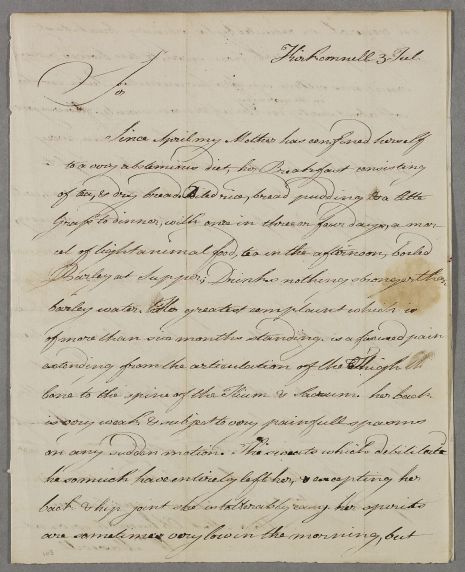 Kirkconnell 3 Jul.
Sir
Since April my Mother has confined herself
to a very abstemious diet, her Breakfast consisting
of tea, & dry bread, Boiled rice, bread pudding & a little
to dinner, with once in three or four days, a mor-
cel of light animal food, tea in the afternoon, boiled
Barley at Supper; Drinks nothing stronger then
barley water. Her greatest complaint which is
of more than six months standing, is a pain
extending from the articulation of the Thigh
bone to the spine of the Ilium & Sacrum. her back
is very weak & subject to very painfull spasms
on any sudden motion. The sweats which debilitate
her so much have entirely left her, & excepting her
back & hip joint she is tolerably easy, her spirits
are sometimes very low in the morning, but